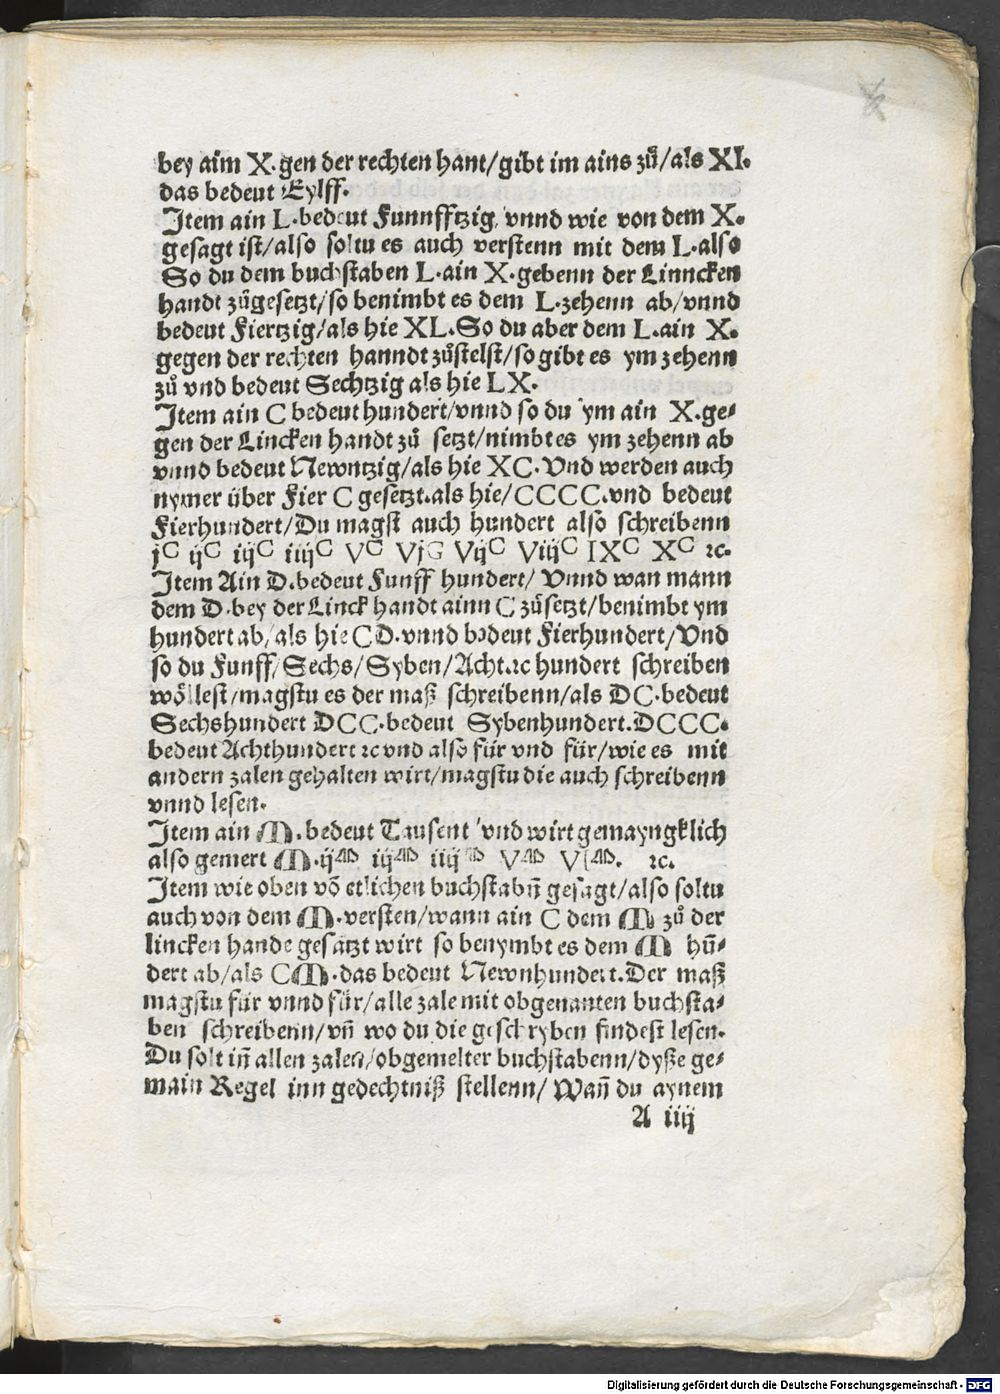 bey aim X.gen der rechten hant/gibt im ains zů/als XI.
das bedeut Eylff.
Item ain L.bedeut Funnfftzig/vnnd wie von dem X.
gesagt ist/also soltu es auch verstenn mit dem L.also
So du dem buchstaben L.ain X.gebenn der Linncken
handt zůgesetzt/so benimbt es dem L.zehenn ab/vnnd
bedeut Fiertzig/als hie XL.So du aber dem L.ain X.
gegen der rechten hanndt zůstelst/so gibt es ym zehenn
zů vnd bedeut Sechtzig als hie LX.
Item ain C bedeut hundert/vnnd so du ym ain X.ge⸗
gen der Lincken handt zů setzt/nimbt es ym zehenn ab
vnnd bedeut Newntzig/als hie XC.Vnd werden auch
nymer über Fier C gesetzt.als hie/CCCC.vnd bedeut
Fierhundert/Du magst auch hundert also schreibenn
jC ijC iijC iiijC VC VjC VijC ViijC IXC XC ⁊c.
Item Ain D.bedeut Funff hundert/Vnnd wan mann
dem D.bey der Linck handt ainn C zůsetzt/benimbt ym
hundert ab/als hie CD.vnnd bedeut Fierhundert/Vnd
so du Funff/Sechs/Syben/Acht.⁊c hundert schreiben
wöllest/magstu es der maß schreibenn/als DC.bedeut
Sechshundert DCC.bedeut Sybenhundert.DCCC.
bedeut Achthundert ⁊c vnd also für vnd für/wie es mit
andern zalen gehalten wirt/magstu die auch schreibenn
vnnd lesen.
Item ain M.bedeut Tausent vnd wirt gemayngklich
also gemert M.ijM iijM iiijM VM VjM. ⁊c.
Item wie oben võ etlichen buchstabñ gesagt/also soltu
auch von dem M.versten/wann ain C dem M zů der
lincken hande gesatzt wirt so benymbt es dem M hũ⸗
dert ab/als CM.das bedeut Newnhundert.Der maß
magstu für vnnd für/alle zale mit obgenanten buchsta⸗
ben schreibenn/vñ wo du die geschryben findest lesen.
Du solt iñ allen zalen/obgemelter buchstabenn/dyße ge⸗
main Regel inn gedechtniß stellenn/Wañ du aynem
A iiij
Digitalisierung gefördert durch die Deutsche Forschungsgemeinschaft - DFG